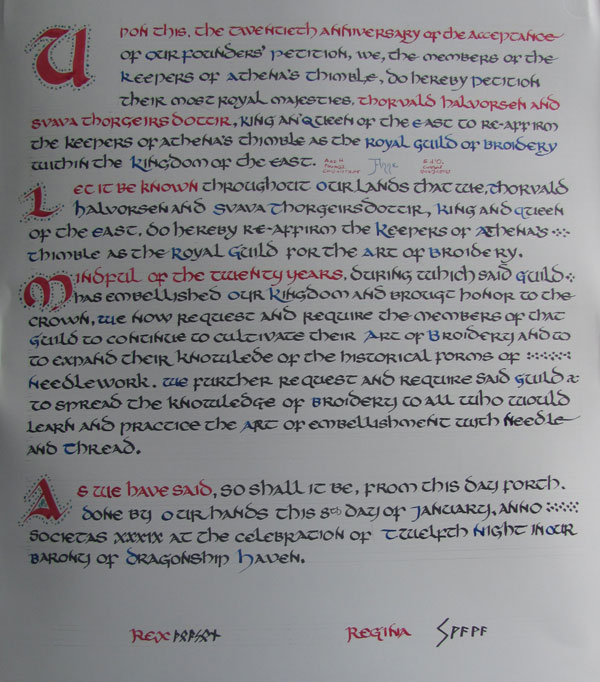 Upon this, the twentieth anniversary of the acceptance
of our founders' petition, we, the members of the
Keepers of Athena's Thimble, do hereby petition
their most royal majesties, Thorvald Halvorsen and
Svava Thorgeirsdottir, King an' Queen of the East to re-affirm
the Keepers of Athena's Thimble as the Royal Guild of Broidery
within the Kingdom of the East.
Let it be known throughout our lands that we, Thorvald
Halvorsen and Svava Thorgeirsdottir, King and Queen
of the East, do hereby re-affirm the Keepers of Athena's
Thimble as the Royal Guild for the Art of Broidery.
Mindful of the twenty years, during which said Guild
has embellished our Kingdom and brougt honor to the
crown, we now request and require the members of that
Guild to continue to cultivate their Art of Broidery and to
to expand their knowlede of the historical forms of
Needlework. We further request and require said Guild
to spread the knowledge of Broidery to all who would
learn and practice the Art of embellishment with Needle
and Thread.
As we have said, so shall it be, from this day forth.
Done by our hands this 8th day of January, anno
societas XXXIX at the celebration of Twelfth Night in our
Barony of Dragonship Haven.
Rex
Regina